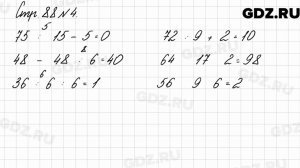 GDZ.RU
Стр. 88 № 4.
5
75 : 15 - 5 = 0 72 : 9 + 2 = 10
8
48 - 48 : 6 = 40 64 17 2 = 98
6
36 : 6 : 6 = 1 56 9 6 = 2
GDZ.RU